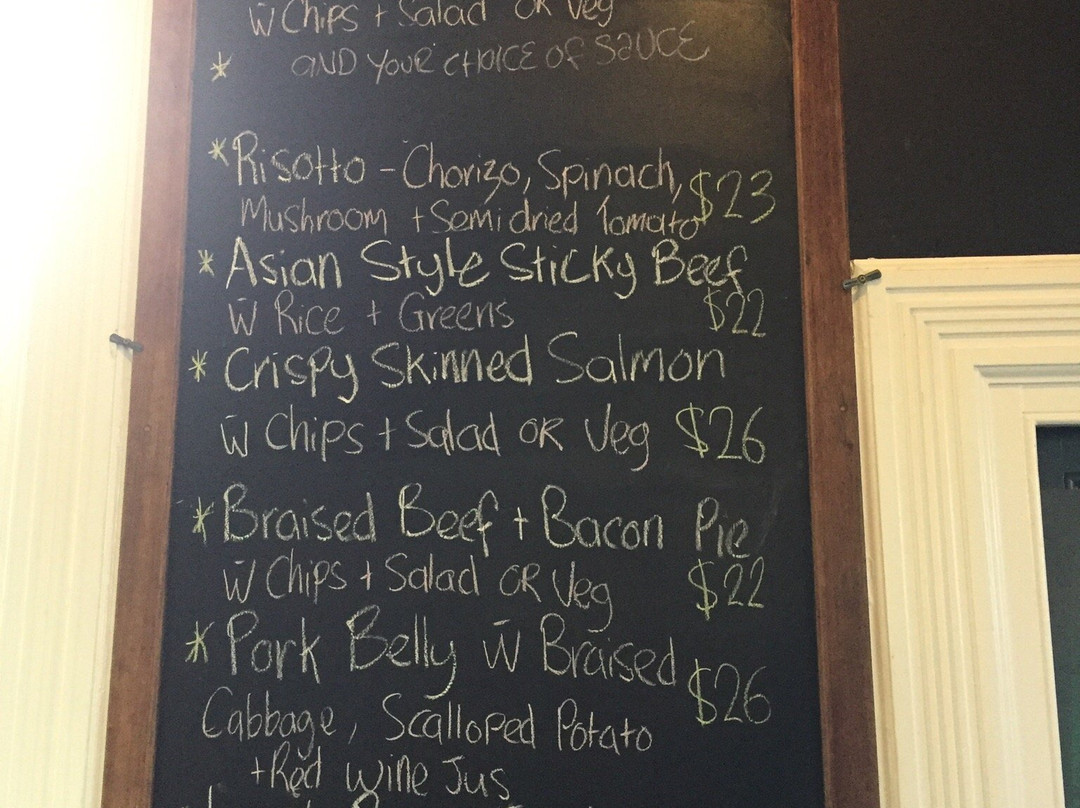 w̄ Chips + Salad OR Veg
* AND YOUR CHOICE OF SAUCE
* Risotto - Chorizo, Spinach,
Mushroom + Semi dried Tomato $23
* Asian Style Sticky Beef
w̄ Rice + Greens $22
* Crispy Skinned Salmon
w̄ Chips + Salad OR Veg $26
* Braised Beef + Bacon Pie
w̄ Chips + Salad OR Veg $22
* Pork Belly w̄ Braised
Cabbage, Scalloped Potato $26
+ Red Wine Jus